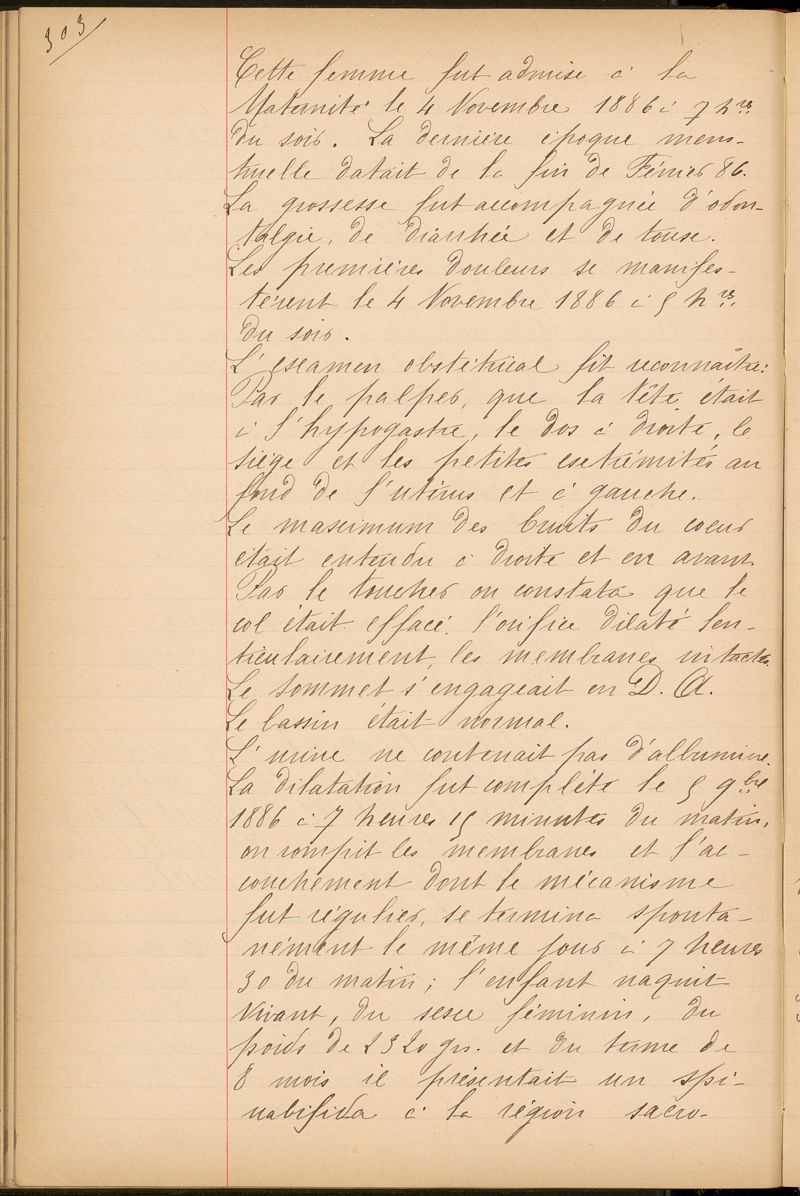 303
Cette femme fut admise à la
Maternité le 4 Novembre 1886 à 7 hres
du soir. La dernière époque mens-
truelle datait de la fin de Février 86.
La grossesse fut accompagnée d'odon-
talgie, de diarrhée et de toux.
Les premières douleurs se manifes-
tèrent le 4 Novembre 1886 à 5 hres.
du soir.
L'examen obstétrical fit reconnaître:
Par le palper, que la tête était
à l'hypogastre, le dos à droite, le
siège et les petites extrémités au
fond de l'utérus et à gauche.
Le maximum des bruits du coeur
était entendu à droite et en avant.
Par le toucher on constata que le
col était effacé, l'orifice dilaté len-
ticulairement, les membranes intactes.
Le sommet s'engageait en D. A.
Le bassin était normal.
L'urine ne contenait pas d'albumine.
La dilatation fut complète le 5 9bre
1886 à 7 heures 15 minutes du matin,
on rompit les membranes et l'ac-
couchement dont le mécanisme
fut régulier, se termina sponta-
nément le même jour à 7 heures
30 du matin; l'enfant naquit
vivant, du sexe féminin, du
poids de 2320 grs. et du terme de
8 mois il présentait un spi-
nabifida à la région sacro-